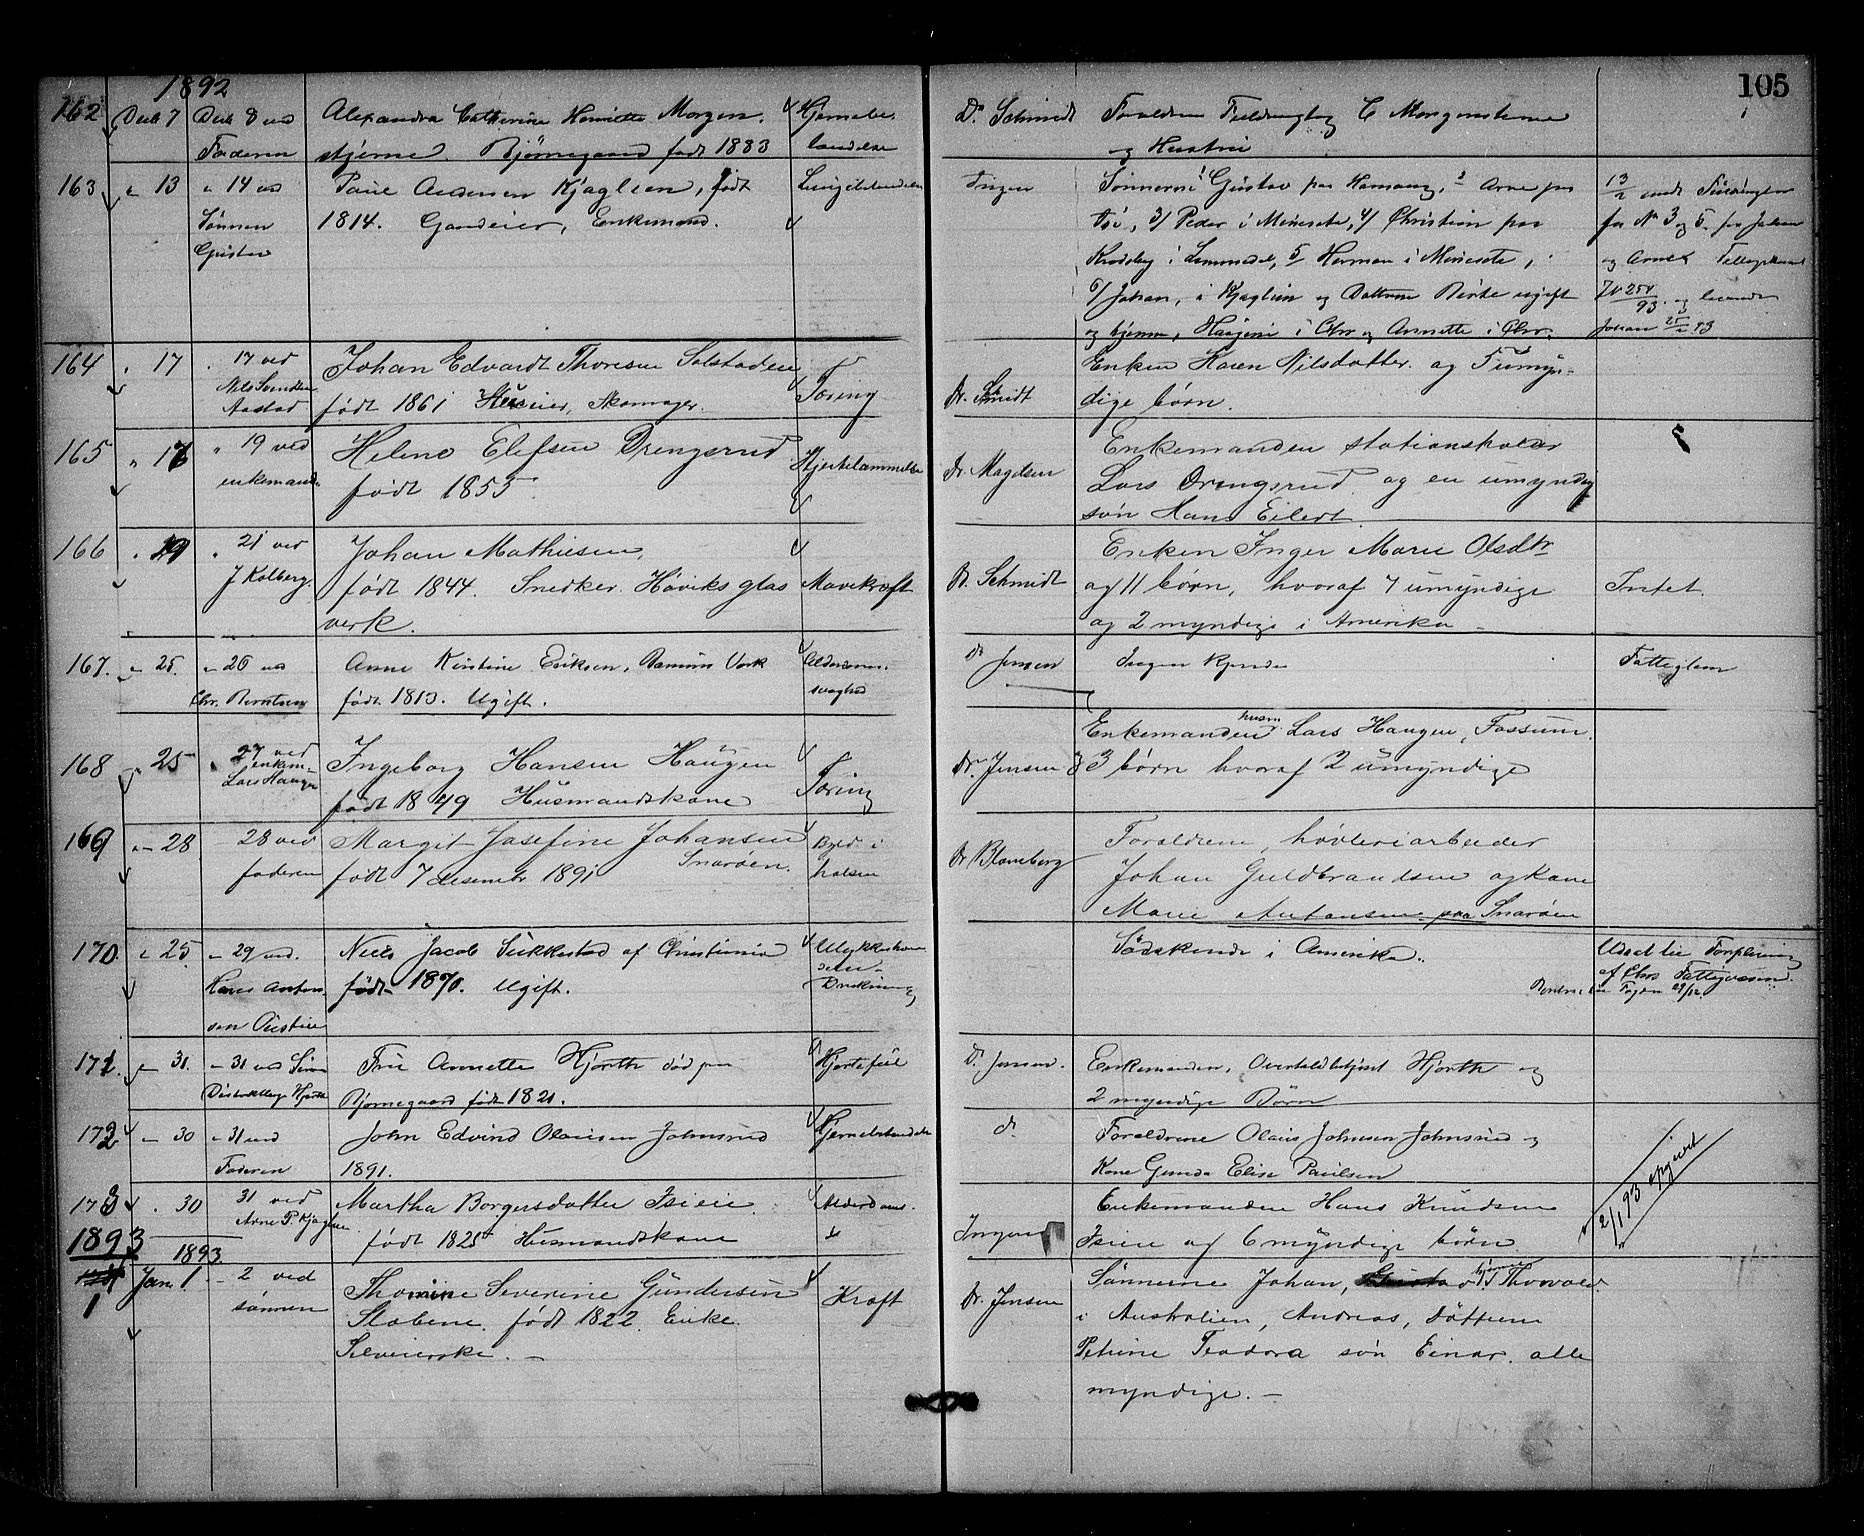 105
1892
162 Decb 7 Decb 8 ved Alexandra Cathrine Henriette Morgen- Hjernebe- Dr. Schmidt Forældrene C Morgenstierne
Faderen stjerne. Bjørnegaard født 1883 tændelse og Hustru
163 " 13 " 14 ved Andersen Kjaglien, født Ingen Sønnerne 1 Gustav paa Hamang, 2 Arne paa 13/2
Sønnen 1814. Gaardeier, Enkemand. 3/ Peder i Minesota, 4/ Christian paa for No 3 og 5 for Johan
Gustav i 5/ Herman i Minesota, og Arne
6/ Johan, i Kjaglien og Datteren Berte ugift 93
og hjemme, i Chr og Annette i Chr. Johan 93
164 " 17 " 17 ved Johan Edvardt Thoresen Solstaden Enken Karen Nilsdatter og umyn-
Nils Svendsen født 1861 Huseier, Skomager. Tæring Dr. Schmidt dige børn.
Aastad
165 " 17 " 19 ved Helene Elefsen Drengsrud Hjertelammelse Dr. Magelsen Enkemanden stationsholder
enkemand. født 1855 Lars Drengsrud og en umyndig
søn Hans Eilert
166 " 19 " 21 ved Johan Mathiesen, Enken Inger Marie Olsdtr
J Kolberg. født 1844. Snedker. Høviks glas Mavekræft Dr. Schmidt og 11 børn, hvoraf 7 umyndige Intet.
verk. og 2 myndige i Amerika
167. " 25. " 26 ved Anne Kirstine Eriksen, Bærums Verk Alderdoms- Dr Jensen Ingen kjendte Fattiglem
Chr. Berntsen født 1813. Ugift. svaghed
168 " 25 " 27 ved Ingeborg Hansen Haugen Enkemanden husm. Lars Haugen, Fossum.
enkem. født 1849 Husmandskone Tæring Dr. Jensen 3 børn hvoraf 2 umyndige
Lars Haugen
169 " 28 28 ved Margit Josefine Johansen Byld i Dr Blomberg Forældrene, høvleriarbeider
faderen født 7 desembr 1891 Snarøen. halsen Johan Guldbrandsen og kone
Marie Antonsen paa Snarøen
170. " 25. " 29 ved. Niels Jacob Sikkestad af Christiania Ulykkeshæn- Sødskende i Amerika. Udsat til Forpleining
Hans Anton- født 1870. Ugift. delse af Chra Fattigvæsen.
sen Østlien Drukning til Fogden 29/12.
171. " 31. " 31 ved Fru Annette Hjorth død paa Hjertefeil Dr. Jensen. Enkemanden, Hjorth og
Hjorth Bjørnegaard født 1821. 2 myndige Børn
172 " 30 " 31 ved John Edvind Olausen Johnsrud Hjernebetændelse do Forældrene Olaus Johnsen Johnsrud og
Faderen 1891. Kone Gunda Elise Paulsen
173 " 30 31 ved Martha Borgersdatter Isieie Alderdoms. Enkemanden Hans Knudsen 2/1 93 opgjort
Arne P. Kjaglien født 1825 Husmandskone Ingen Isieie og 6 myndige børn
1893 1893.
1 Jan. 1 - 2 ved Thomine Severine Gundersen Kræft Dr. Jensen Sønnerne Johan, hjemme, Thorvald
sønnen Slæbene. født 1822. Enke i Australien, Andreas, døttrene
Selveierske. Petrine Teodora søn Einar. alle
myndige.